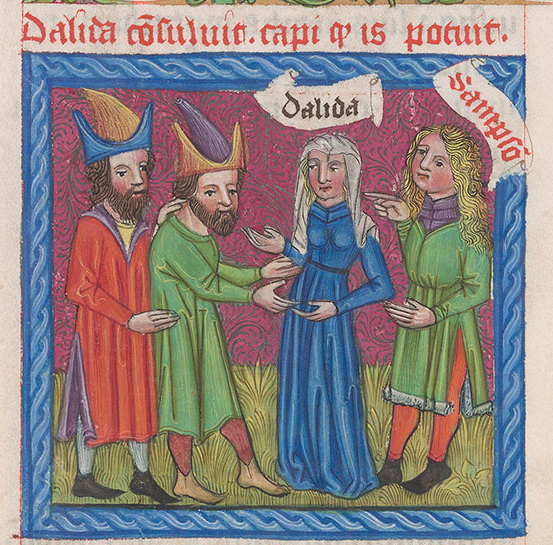 Dalida cōsuluit. capi qͥ is potuit.
dalida
Sampsō